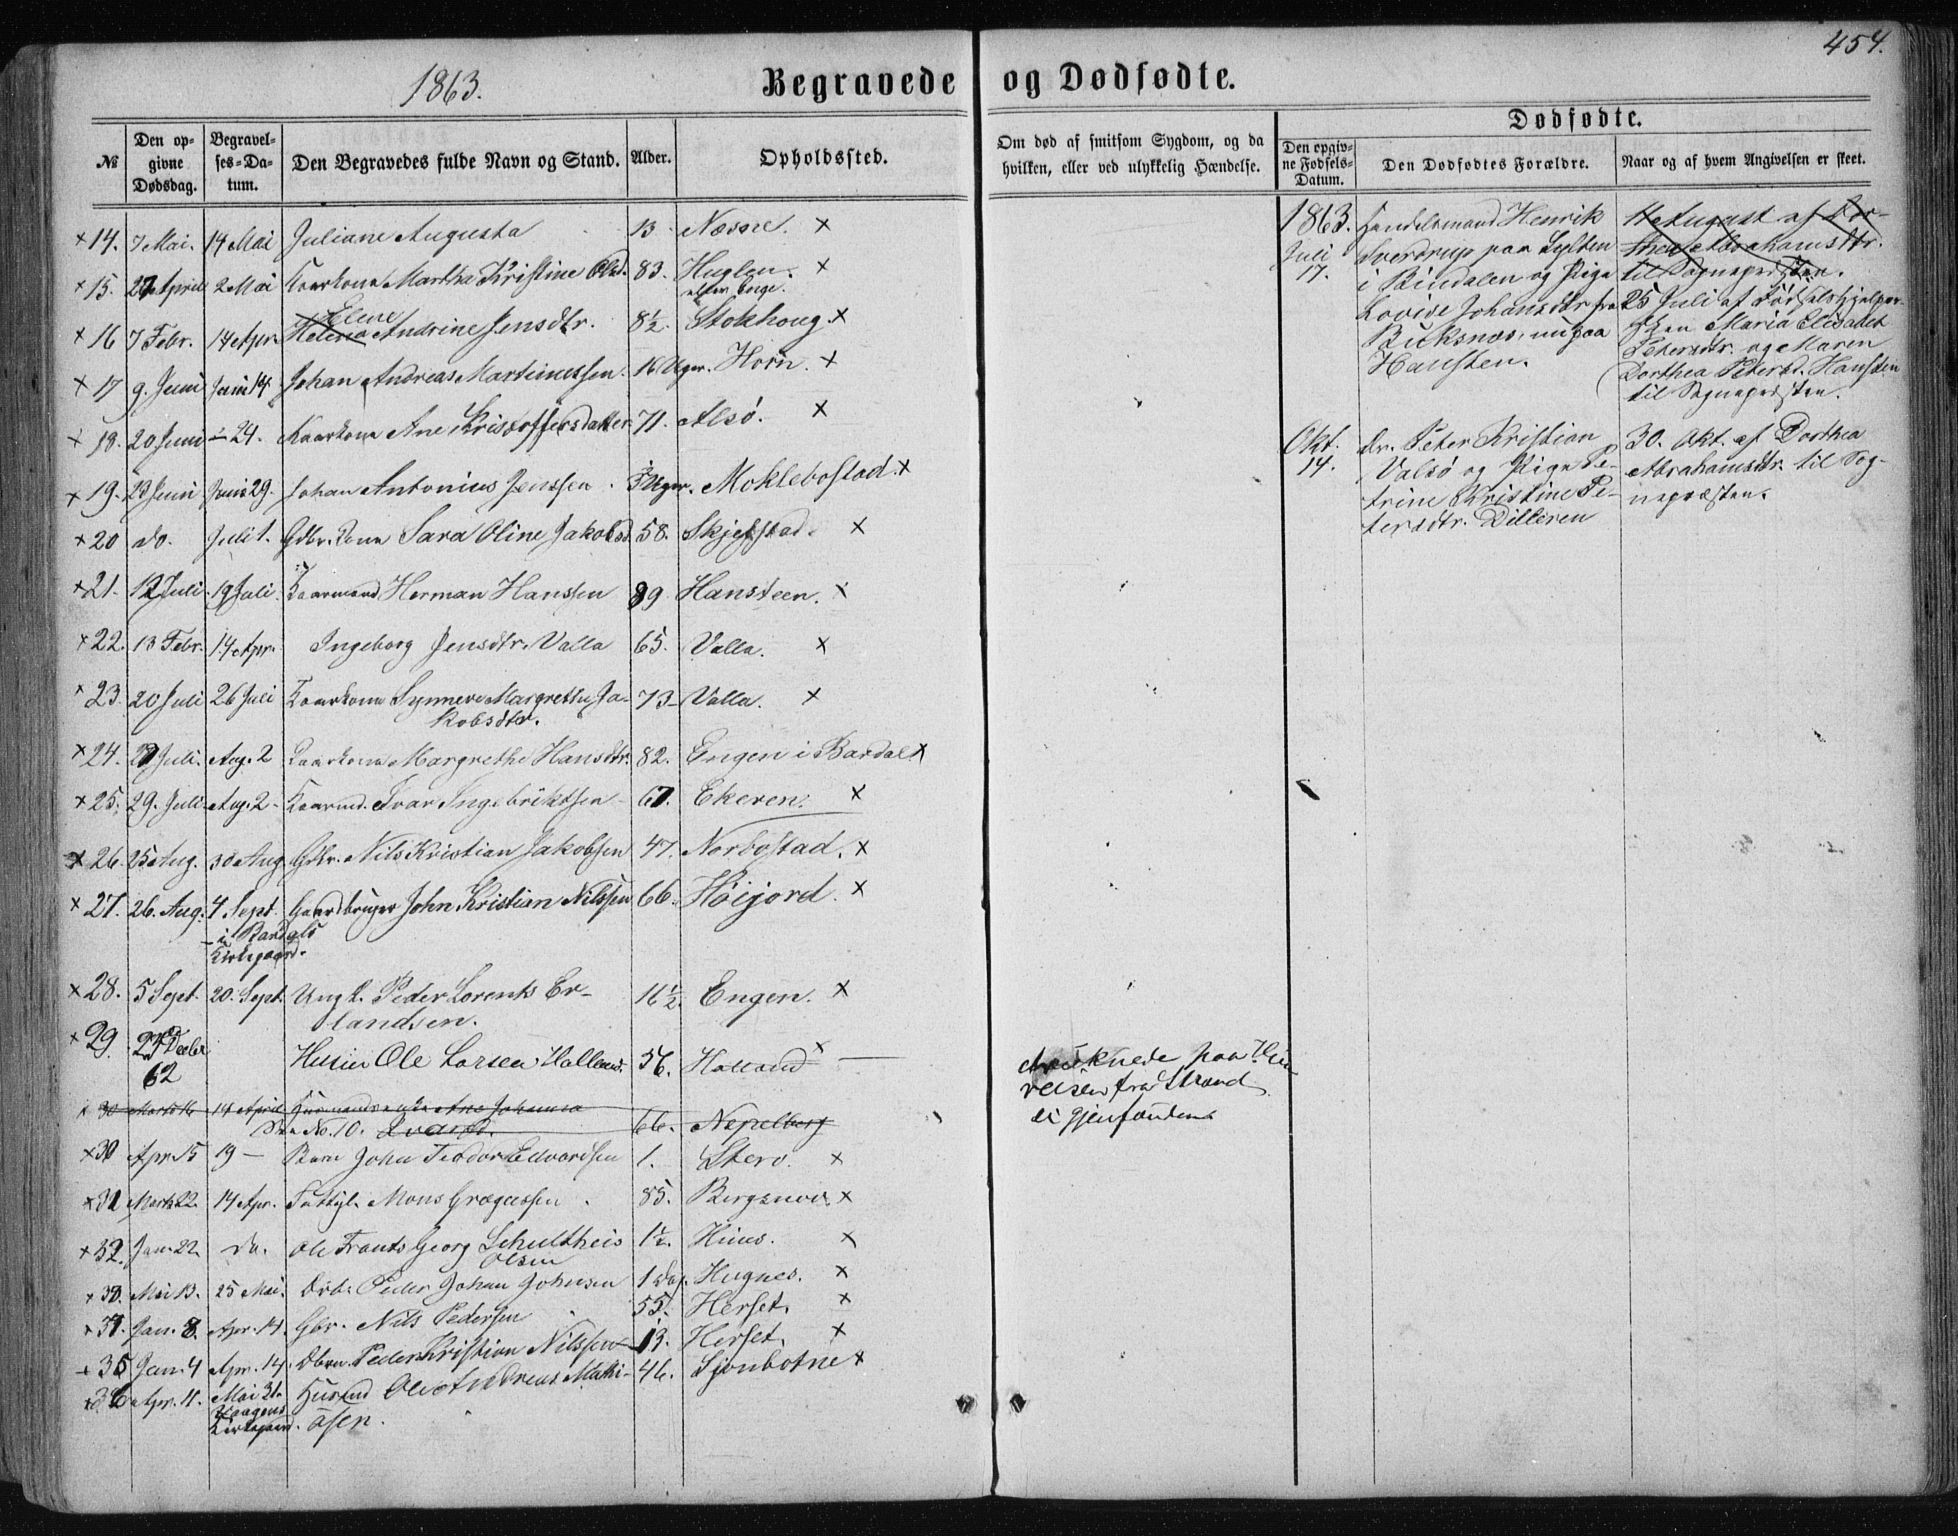 454.
1863.
Begravede og Dødfødte.
Dødfødte.
№
Den opgivne Dødsdag.
Begravelses-Datum.
Den Begravedes fulde Navn og Stand.
Alder.
Opholdssted.
Om død af smitsom Sygdom, og da hvilken, eller ved ulykkelig Hændelse.
Den opgivne Fødsels-Datum.
Den Dødfødtes Forældre.
Naar og af hvem Angivelsen er skeet.
× 14. 7 Mai. 14 Mai Juliane Augusta 13 Næsne. ×
× 15. 27 April 2 Mai Kaarkone Martha Kristine Olsd. 83. Huglen. ×
Elene
× 16 7 Febr. 14 Apr. Helena Andrine Jensdtr. 8½ Stokhoug ×
× 17 9. Juni Juni 14 Johan Andreas Martinussen. 16 Uger. Horn. ×
× 18. 20 Juni – 24. Kaarkone Ane Kristoffersdatter 71. Alsø. ×
× 19. 23 Juni Juni 29. Johan Antonius Jenssen. 3 Uger. Moklebostad. ×
× 20 do. Juli 1. Gdbr. Kone Sara Oline Jakobsd. 58. Skjefstad. ×
× 21. 12 Juli 19 Juli Kaarmand Herman Hanssen 89 Hansteen. ×
× 22. 13 Febr. 14 Apr. Ingeborg Jensdtr. Valla 65. Valla. ×
× 23. 20 Juli 26 Juli Kaarkone Synneve Margrethe Ja- 73 Valla. ×
kobsdtr.
× 24. 27 Juli. Aug. 2 Kaarkone Margrethe Hansdtr. 82. Engen i Bardal ×
× 25. 29. Juli Aug. 2 Kaarmd. Ivar Ingebriktsen 67. Ekeren. ×
× 26. 25 Aug. 30 Aug Gdbr. Nils Kristian Jakobsen 47. Norbostad. ×
× 27. 26. Aug. 4 Sept. Gaardbruger John Kristian Nilssen 66. Høijord. ×
i Bardals
Kirkegaard.
× 28. 5 Sept. 20. Sept. Ungk. Peder Lorents Er- 16½. Engen. ×
landsen.
× 29. 27 Decbr Husm Ole Larsen 56. Holland ×
62
× 30 Marts 16 14 April Husmandsenke Ane Johanna
Se No. 10. 66. Nepelberg
× 30 Apr. 15 19 – Barn John Teodor Edvardsen 1. Stero. ×
× 31 Marts 22. 14 Apr. Fattigl. Mons Grægussen 85. Bergsnov ×
× 32. Jan. 22 do. Ole Frants Georg Schultheis 1½. Hines. ×
Olsen
× 33. Mai 13. 25 Mai. Drb. Peder Johan Johnsen 1 Dag. Hugnes. ×
× 34. Jan. 8. Apr. 14. Gbr. Nils Pedersen 55. Herset. ×
× 35 Jan. 4 Apr. 14. Peder Kristian Nilssen 13. Herset. ×
× 36 Apr. 11. Mai 31. Husmd Ole Andreas Mathi- 46. Sjonbotne ×
Kirkegaard. asen.
druknede paa
reisen fra Strand
ei gjenfunden.
1863.
Juli
17.
Handelsmand Henrik
Sverdrup paa Sylten
i Bindalen og Pige
Lovise Johansdtr fra
Buksnæs, nu paa
Hansten.
11 August af Dor-
thea Abrahamsdtr.
til Sognepresten.
25 Juli af Fødselshjelper-
sken Maria Elisabet
Petersdtr. og Maren
Dorthea Petersd. Hansten
til Sognepresten.
Okt.
14.
Peter Kristian
Valsø og Pige Pe-
trine Kristine Pe-
tersdtr. Dilleren
30. Okt. af Dorthea
Abrahamsdtr. til Sog-
nepræsten.